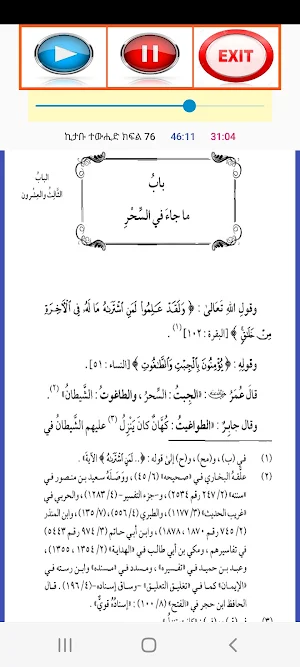 EXIT
ኪታቡ ተውሒድ ክፍል 76 46:11 31:04
البابُ
الثّالِثُ والعِشْرون
بابُ
ما جاءَ في السِّحْرِ
وقولِ اللهِ تَعَالىٰ : ﴿ وَلَقَدْ عَلِمُوا۟ لَمَنِ ٱشْتَرَىٰهُ مَا لَهُۥ فِى ٱلْـَٔاخِرَةِ
مِنْ خَلَـٰقٍ ﴾ [البقرة : ١٠٢] (١).
وقولِهِ : ﴿ يُؤْمِنُونَ بِٱلْجِبْتِ وَٱلطَّـٰغُوتِ ﴾ [النساء : ٥١].
قالَ عُمَرُ : «الجِبتُ : السِّحرُ، والطاغوتُ : الشَّيطانُ» (٢).
وقال جابِرٌ : «الطواغيتُ : كُهَّانٌ كانَ يَنْزِلُ (٣) عليهم الشَّيطانُ في
(١) في (ب)، و(مج)، و(ح) إلىٰ قوله : ﴿.. لَمَنِ ٱشْتَرَىٰهُ ﴾ الآيةَ».
(٢) علَّقه البخاري في «صحيحه» (٦/ ٤٥)، ووَصَلَهُ سعيد بن منصور في
«سننه» (٢/ ٢٤٧ رقم ٢٥٣٤)، و«جزء التفسير» (٤/ ١٢٨٣)، والحربي في
«غريب الحديث» (٣/ ١١٧٧)، والطبري (٤/ ٥٥٦)، (٧/ ١٣٥)، وابن المنذر
(٢/ ٧٤٥ رقم ١٨٧٠، ١٨٧٨)، وابن أبي حاتم (٣/ ٩٧٤ رقم ٥٤٤٣)
في تفاسيرهم، ومكي بن أبي طالب في «الهداية» (٢/ ١٣٥٤، ١٣٥٥)،
وعبد بن حميد في «تفسيره»، ومسدد في «مسنده» وابن رسته في
«الإيمان» كما في «تغليق التعليق» -وساق إسناده- (٤/ ١٩٦). قال
الحافظ ابن حجر في «الفتح» (٨/ ١٠٠) : «إسنادُه قويٌّ».